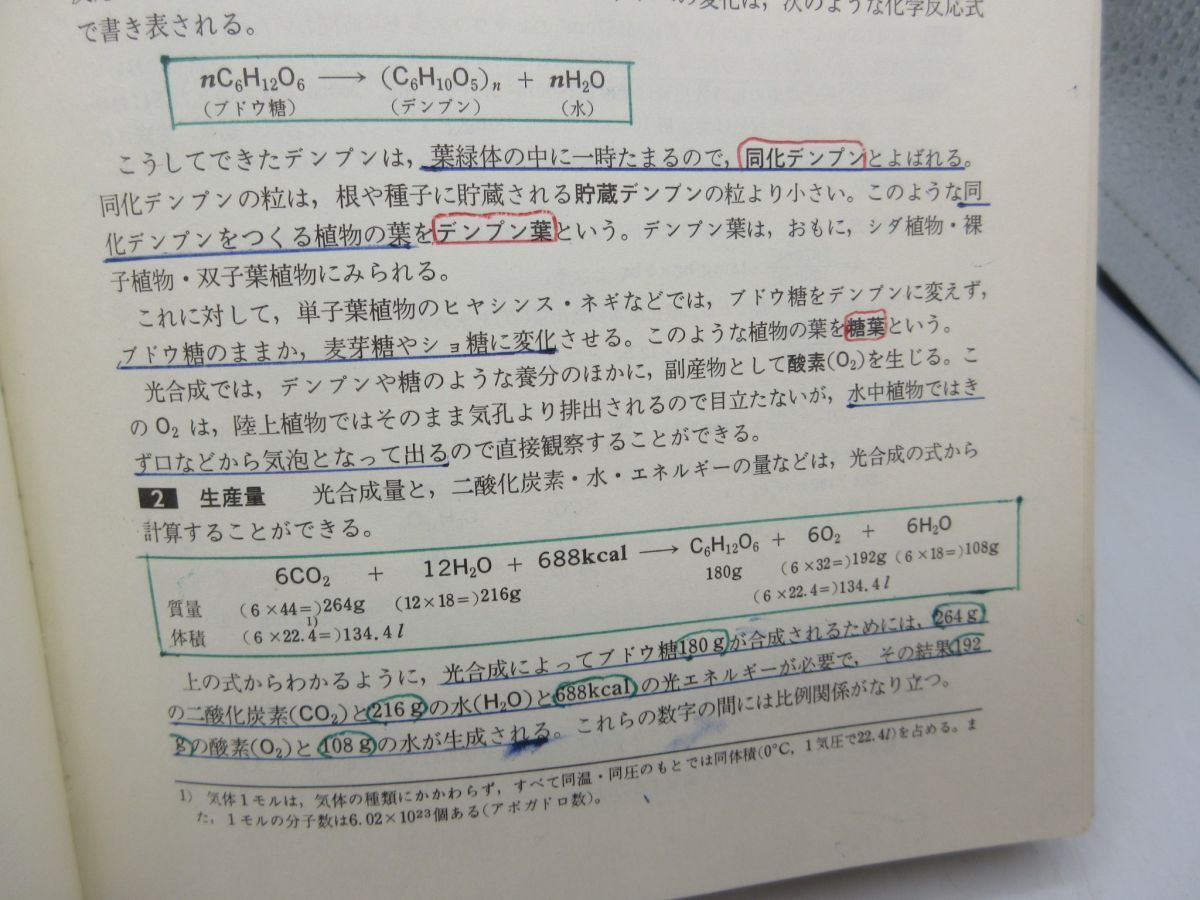 の変化は，次のような化学反応式
で書き表される。
nC₆H₁₂O₆ ⟶ (C₆H₁₀O₅)ₙ + nH₂O
(ブドウ糖) (デンプン) (水)
こうしてできたデンプンは，葉緑体の中に一時たまるので，同化デンプンとよばれる。
同化デンプンの粒は，根や種子に貯蔵される貯蔵デンプンの粒より小さい。このような同
化デンプンをつくる植物の葉をデンプン葉という。デンプン葉は，おもに，シダ植物・裸
子植物・双子葉植物にみられる。
これに対して，単子葉植物のヒヤシンス・ネギなどでは，ブドウ糖をデンプンに変えず，
ブドウ糖のままか，麦芽糖やショ糖に変化させる。このような植物の葉を糖葉という。
光合成では，デンプンや糖のような養分のほかに，副産物として酸素(O₂)を生じる。こ
のO₂は，陸上植物ではそのまま気孔より排出されるので目立たないが，水中植物ではき
ず口などから気泡となって出るので直接観察することができる。
2 生産量 光合成量と，二酸化炭素・水・エネルギーの量などは，光合成の式から
計算することができる。
6CO₂ + 12H₂O + 688kcal ⟶ C₆H₁₂O₆ + 6O₂ + 6H₂O
質量 (6×44=)264g (12×18=)216g 180g (6×32=)192g (6×18=)108g
体積 (6×22.4=)¹⁾134.4l (6×22.4=)134.4l
上の式からわかるように，光合成によってブドウ糖180gが合成されるためには，264g
の二酸化炭素(CO₂)と216gの水(H₂O)と688kcalの光エネルギーが必要で，その結果192
gの酸素(O₂)と108gの水が生成される。これらの数字の間には比例関係がなり立つ。
1) 気体1モルは，気体の種類にかかわらず，すべて同温・同圧のもとでは同体積(0℃，1気圧で22.4l)を占める。ま
た，1モルの分子数は6.02×10²³個ある(アボガドロ数)。